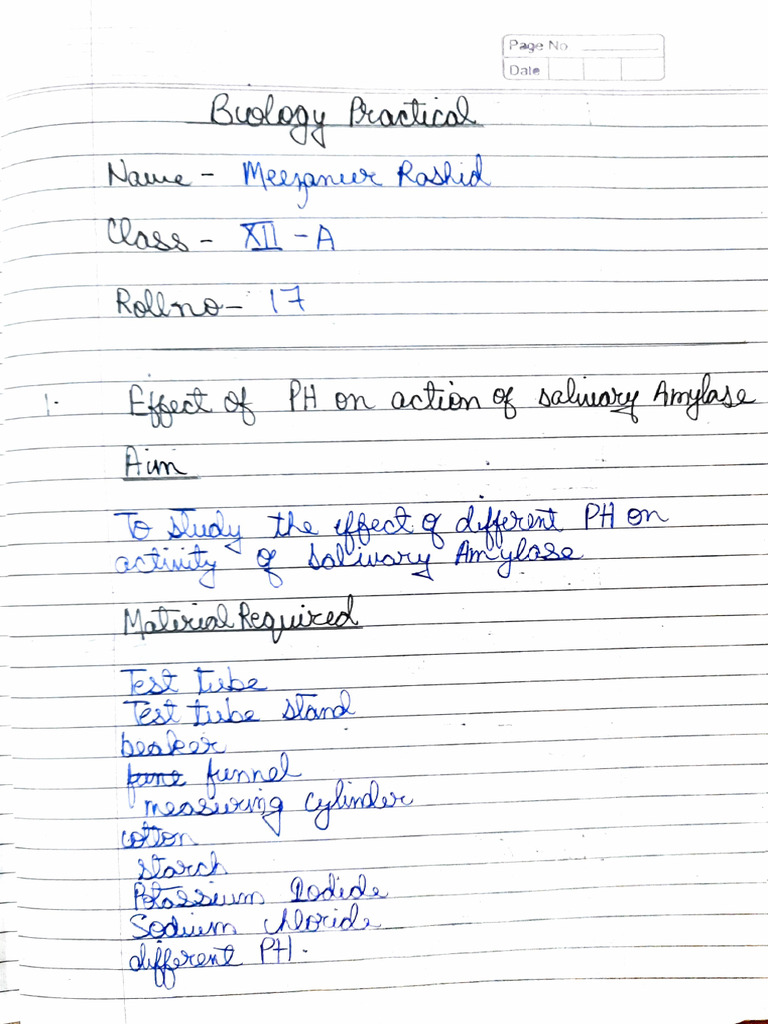 Page No
Date
Biology Practical
Name - Meezanur Rashid
Class - XII - A
Roll no - 17
1. Effect of PH on action of salivary Amylase
Aim
To study the effect of different PH on
activity of salivary Amylase
Material Required
Test tube
Test tube stand
beaker
fune funnel
measuring cylinder
cotton
starch
Potassium Iodide
Sodium chloride
different PH.